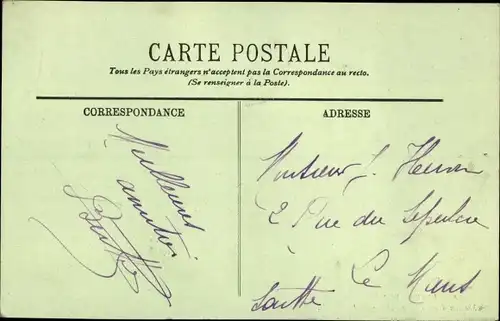 CARTE POSTALE
Tous les Pays étrangers n'acceptent pas la Correspondance au recto.
(Se renseigner à la Poste).
CORRESPONDANCE
Meilleures
amitiés
ADRESSE
Monsieur J.
2 Rue du Sépulcre
Le Mans
Sarthe